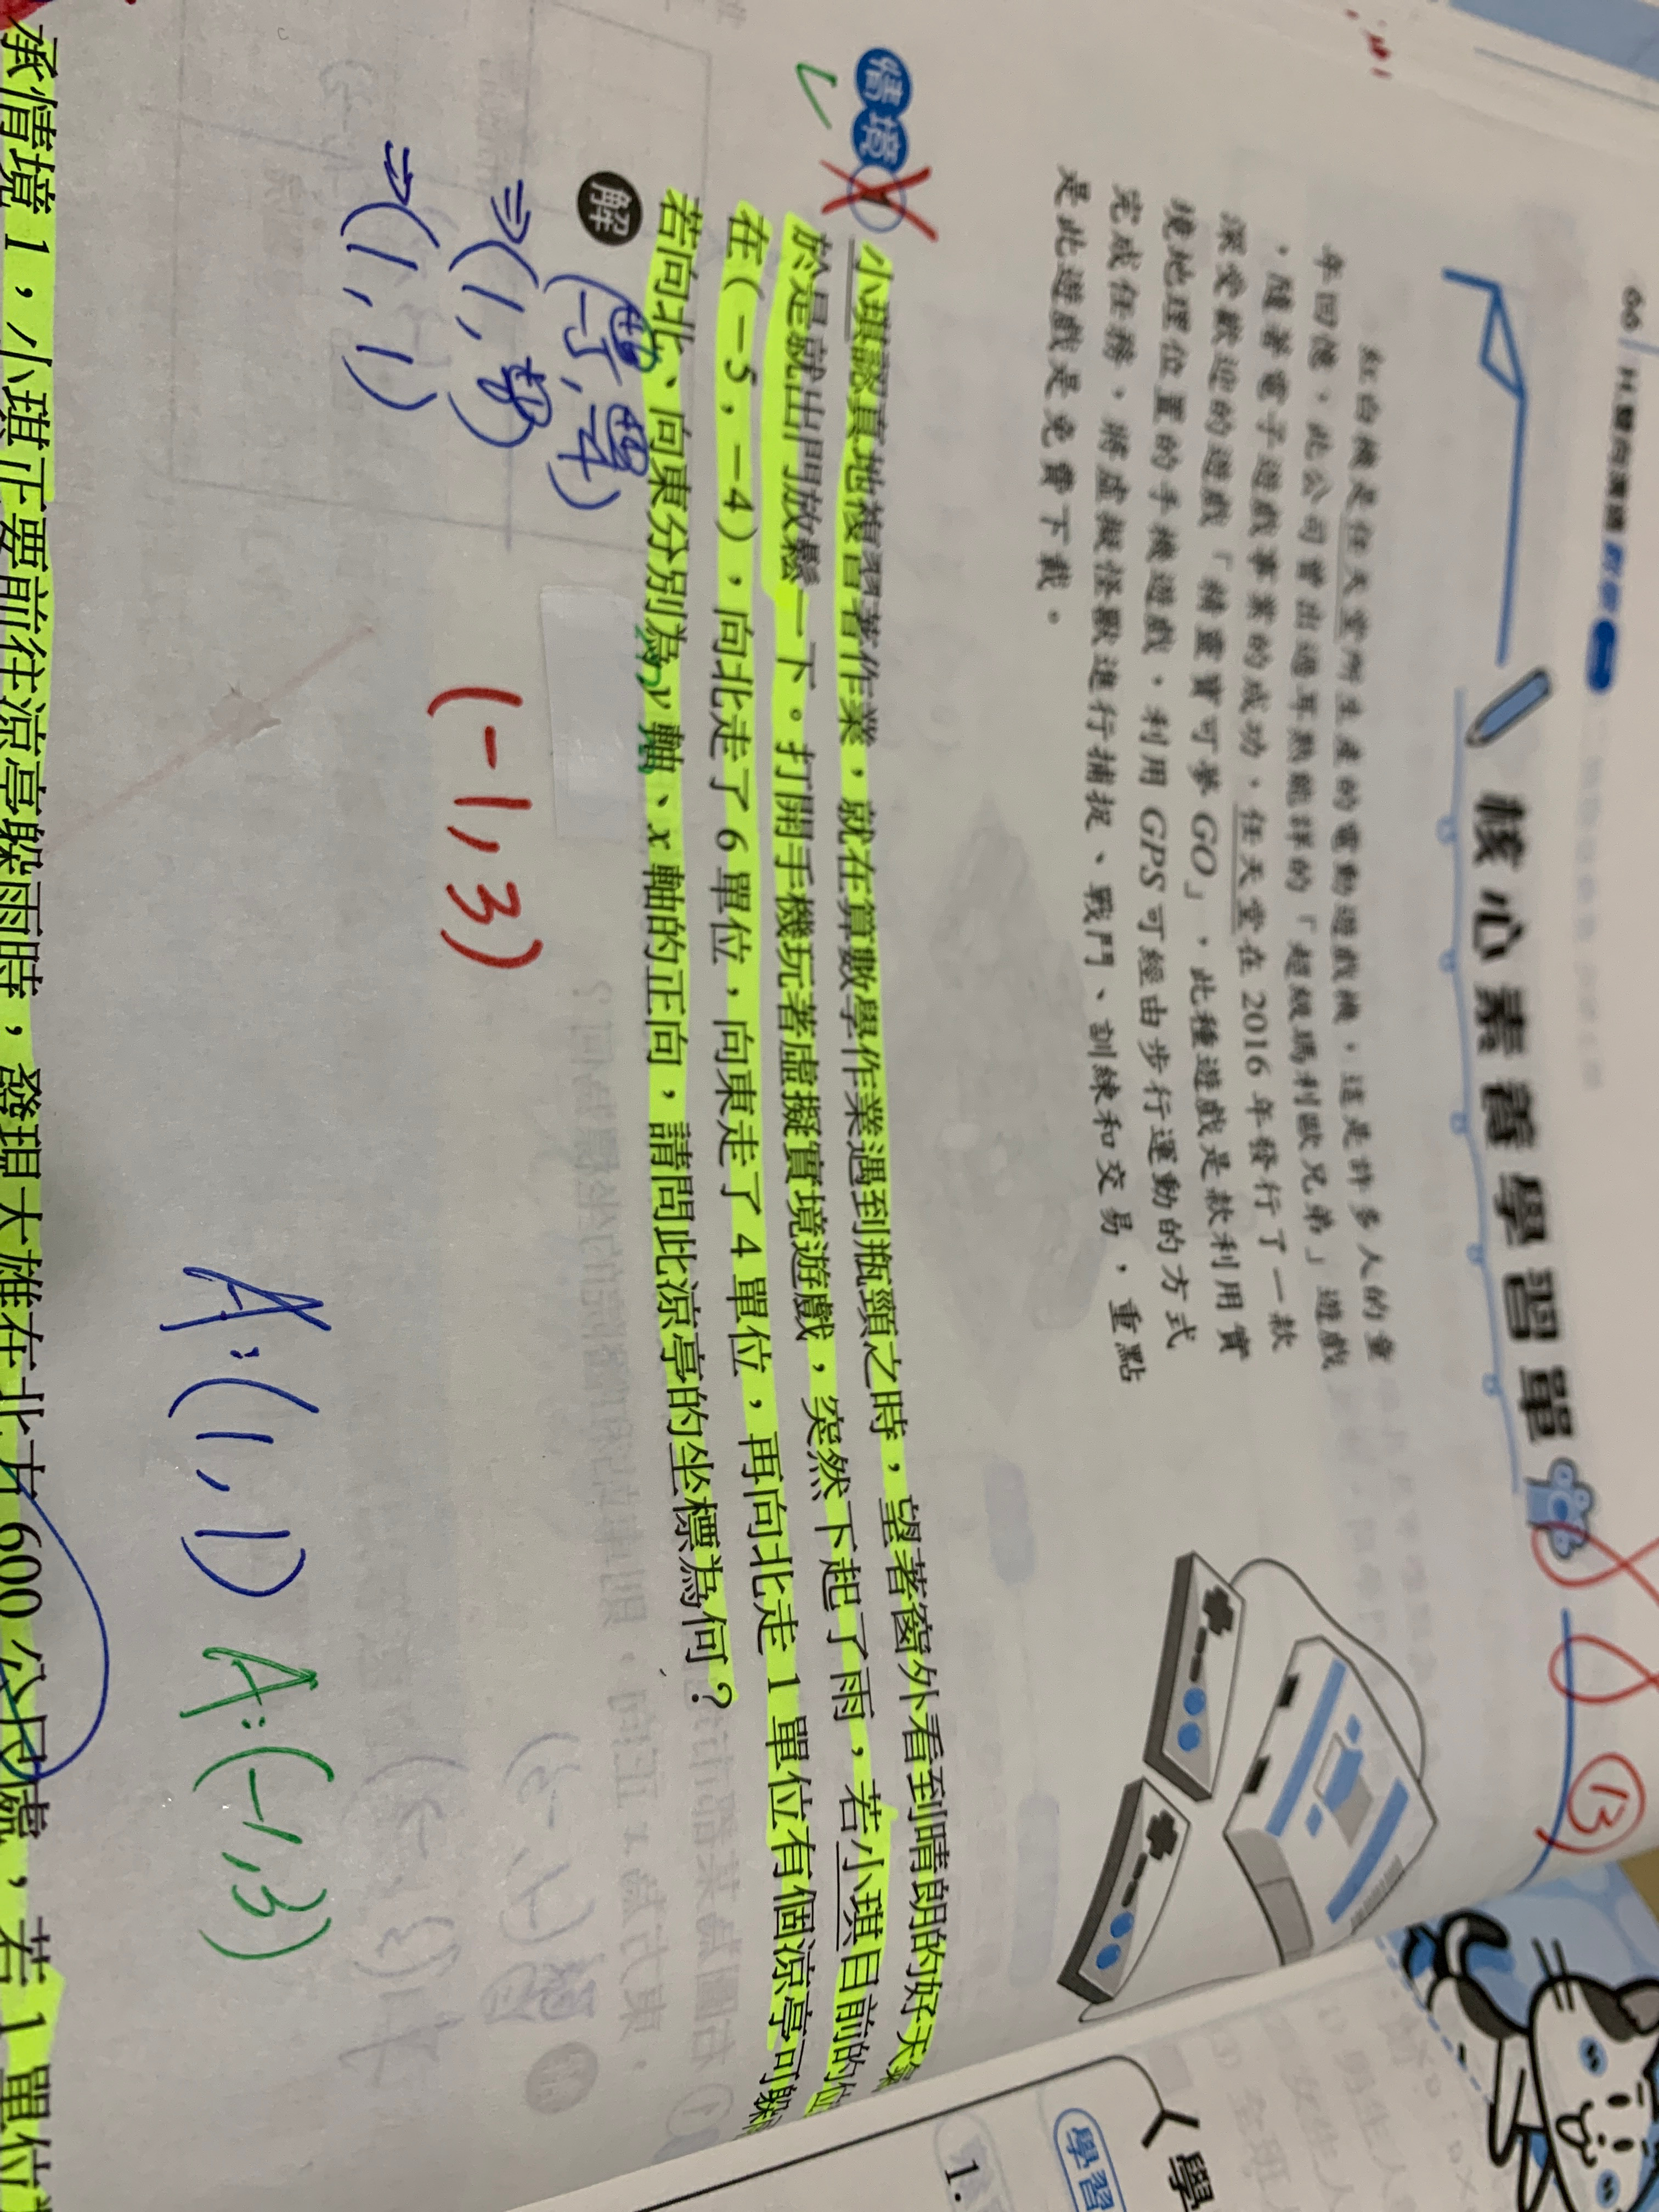 66
核心素養學習單
紅白機是任天堂所生產的電動遊戲機,這是許多人的童
年回憶,此公司曾出過耳熟能詳的「超級瑪利歐兄弟」遊戲
,隨著電子遊戲事業的成功,任天堂在 2016 年發行了一款
深受歡迎的遊戲「精靈寶可夢 GO」,此種遊戲是款利用實
境地理位置的手機遊戲,利用 GPS 可經由步行運動的方式
完成任務,將虛擬怪獸進行捕捉、戰鬥、訓練和交易,重點
是此遊戲是免費下載。
13
情境 1
小琪認真地複習著作業,就在算數學作業遇到瓶頸之時,望著窗外看到晴朗的好天氣
於是就出門放鬆一下。打開手機玩著虛擬實境遊戲,突然下起了雨,若小琪目前的位
在(-5,-4),向北走了 6 單位,向東走了 4 單位,再向北走 1 單位有個涼亭可躲
若向北、向東分別為 y 軸、x 軸的正向,請問此涼亭的坐標為何?
解
⇒(1,
⇒(1,1)
(-1,3)
A:(1,1)
A:(-1,3)
承情境 1,小琪正要前往涼亭躲雨時,發現大雄在北方 600 公尺處,若 1 單位
學
學習
1.